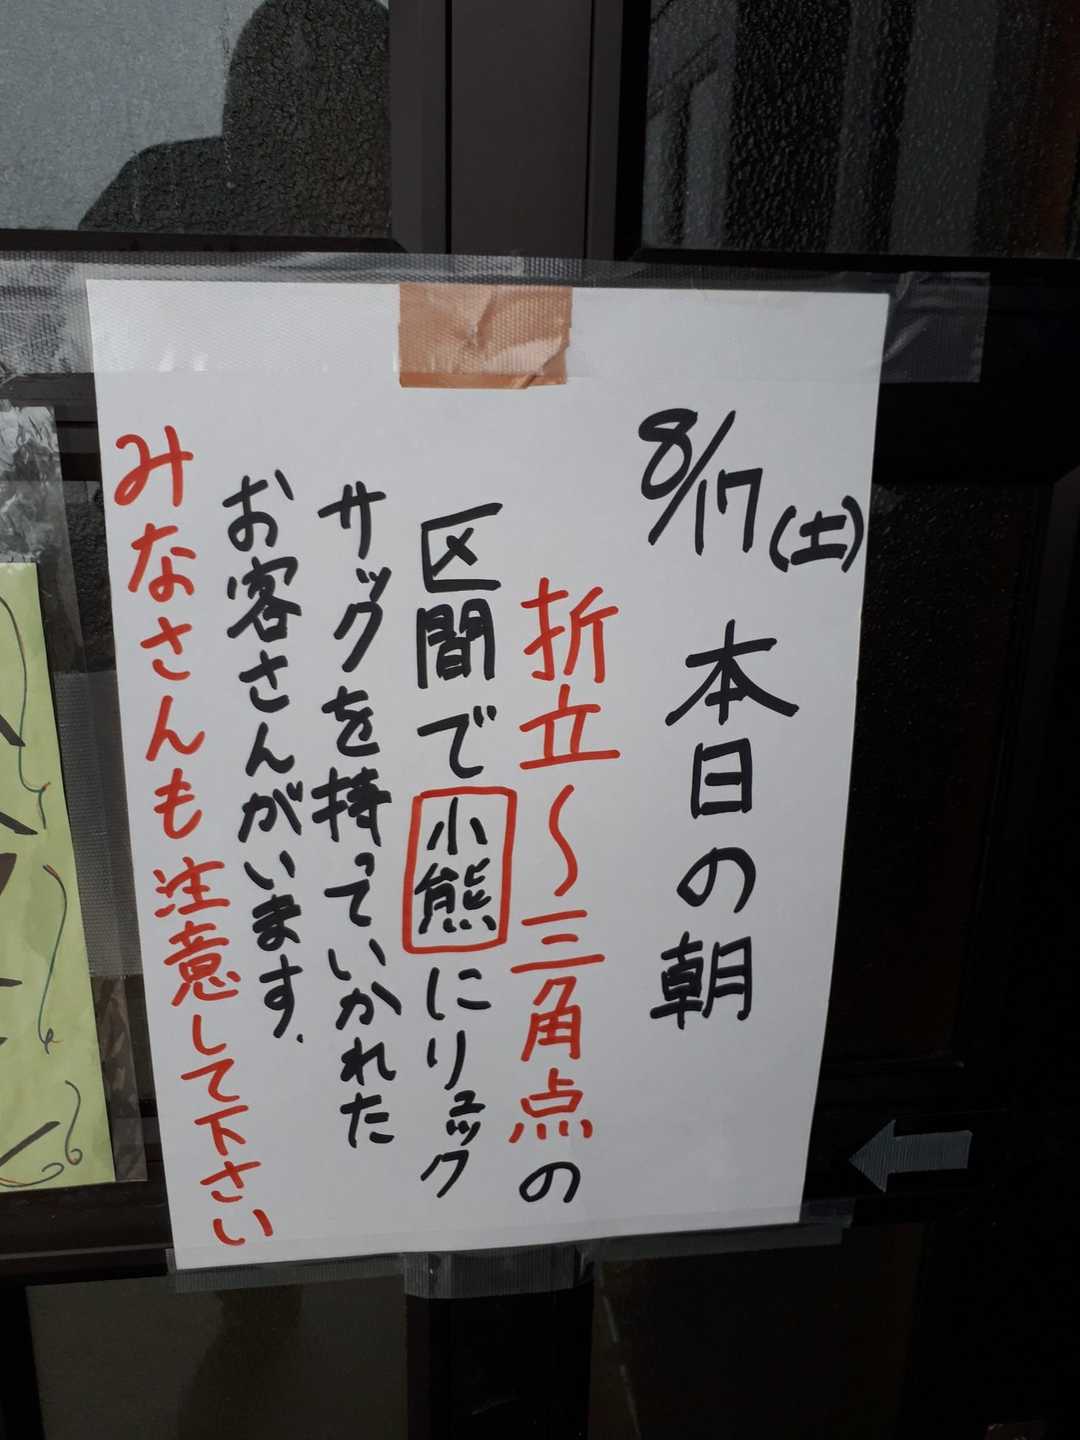 8/17(土) 本日の朝
折立～三角点の
区間で小熊にリュック
サックを持っていかれた
お客さんがいます.
みなさんも注意して下さい